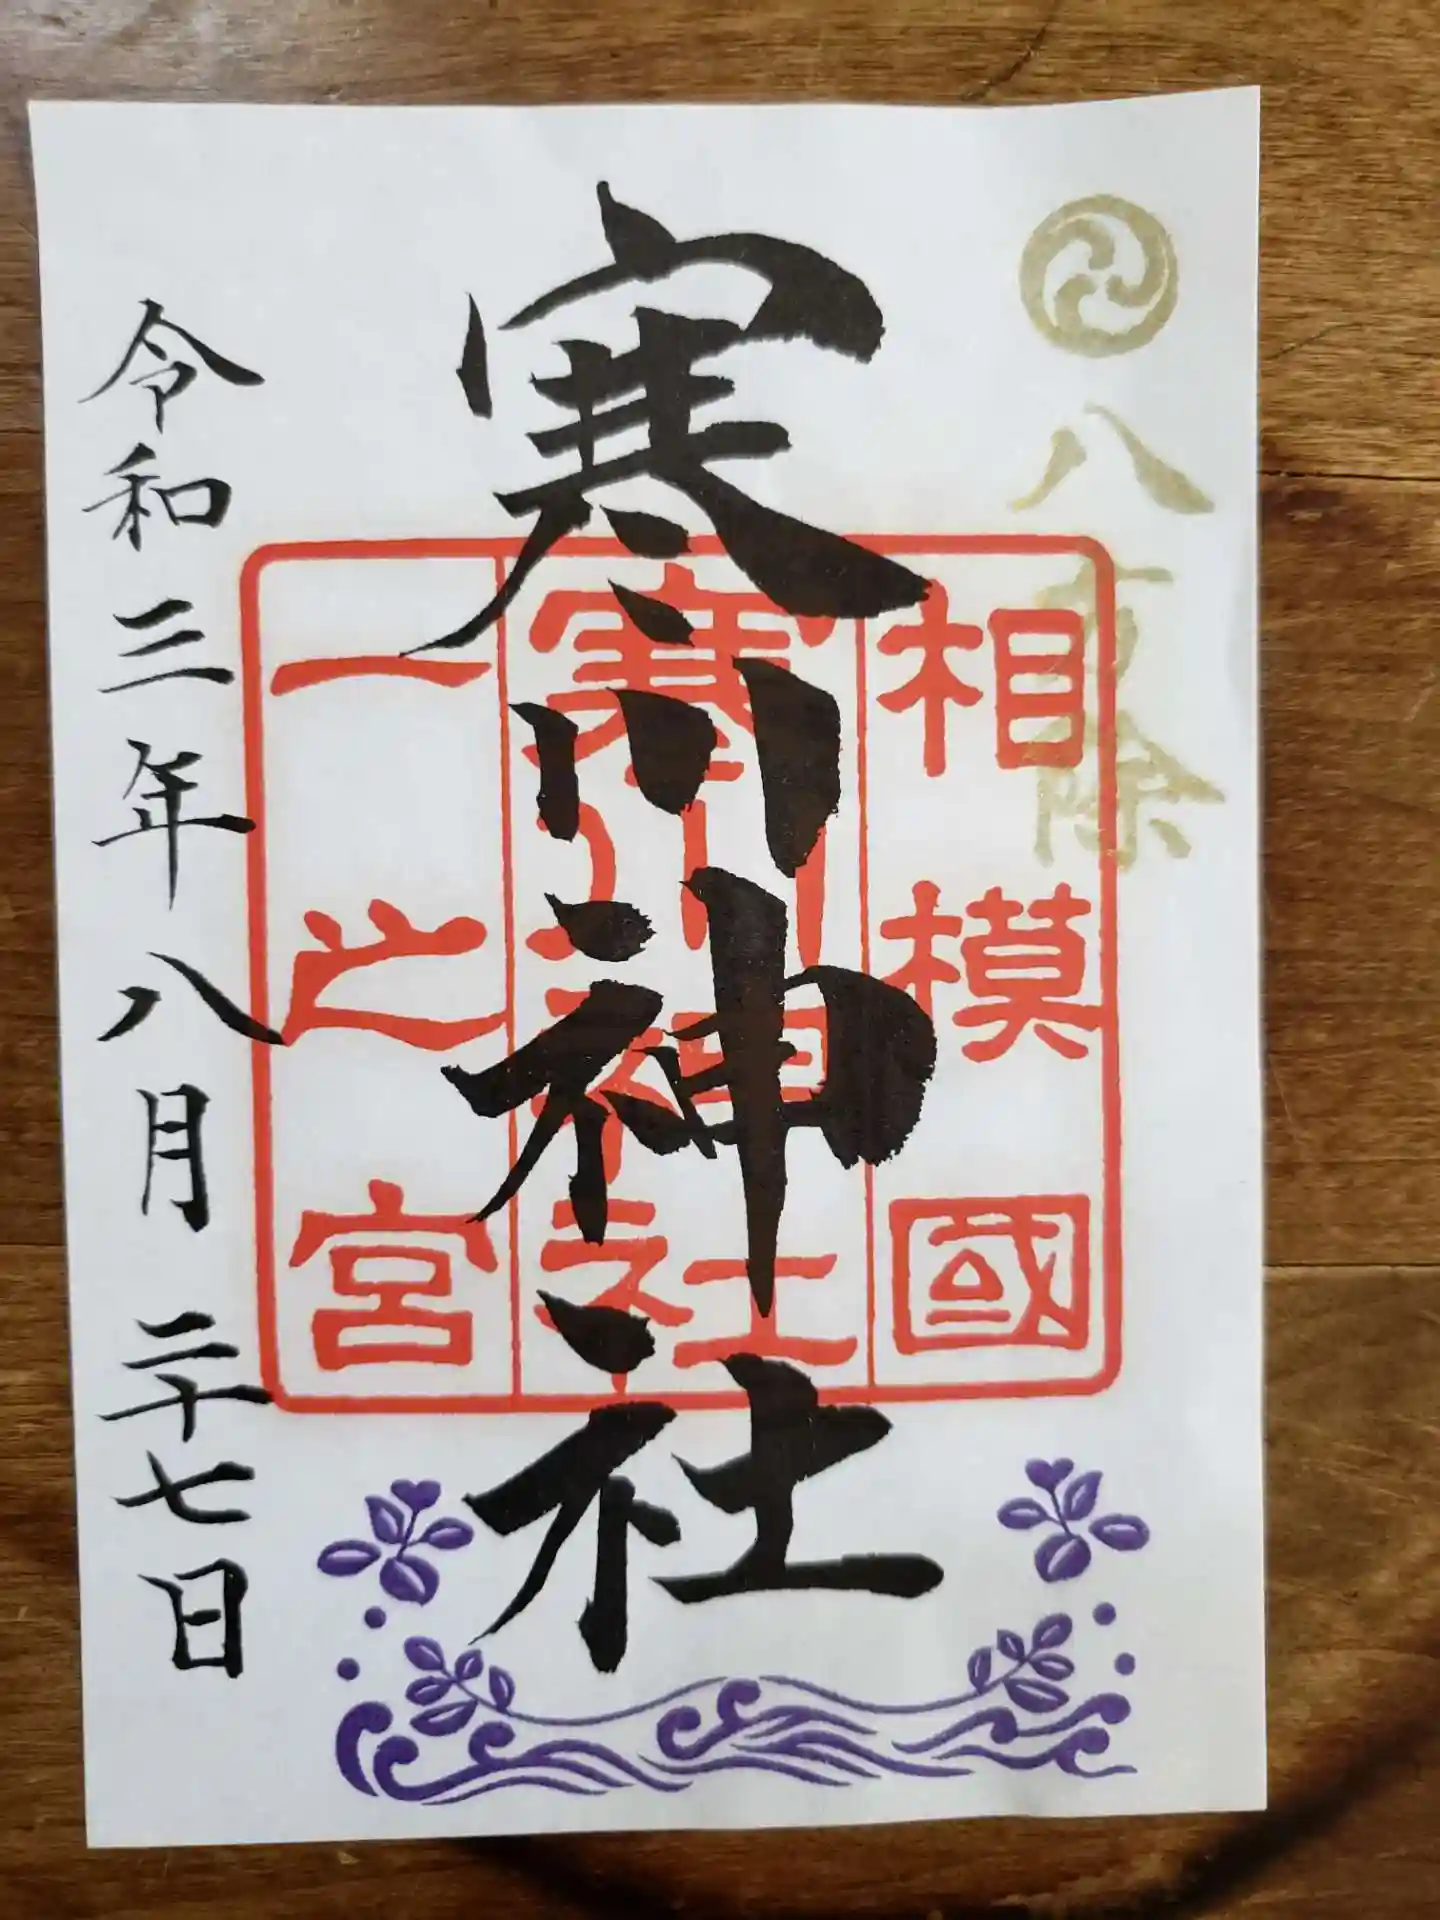 八方除
相模國
寒川神社
一之宮
寒川神社
令和三年八月二十七日